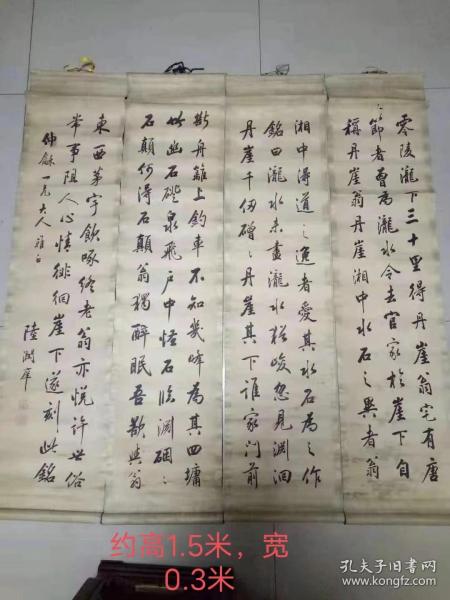 零陵瀧下三十里得丹崖翁宅有唐
節者曾為瀧水令去官家於崖下自
稱丹崖翁丹崖湘中水石之異者翁
湘中得道之逸者愛其水石為之作
銘曰瀧水未盡瀧水猶峻忽見淵洄
丹崖千仞磳〻丹崖其下誰家門前
斷舟籬上釣車不知幾峰為其四墉
竹幽石磴泉飛戶中怪石臨淵硱〻
石顛何得石顛翁獨醉眠吾欲與翁
東西茅宇飲啄終老翁亦悅許世俗
常事阻人心情徘徊崖下遂刻此銘
一兄大人雅
陸潤庠
约高1.5米，宽
0.3米
孔夫子旧书网
www.kongfz.com